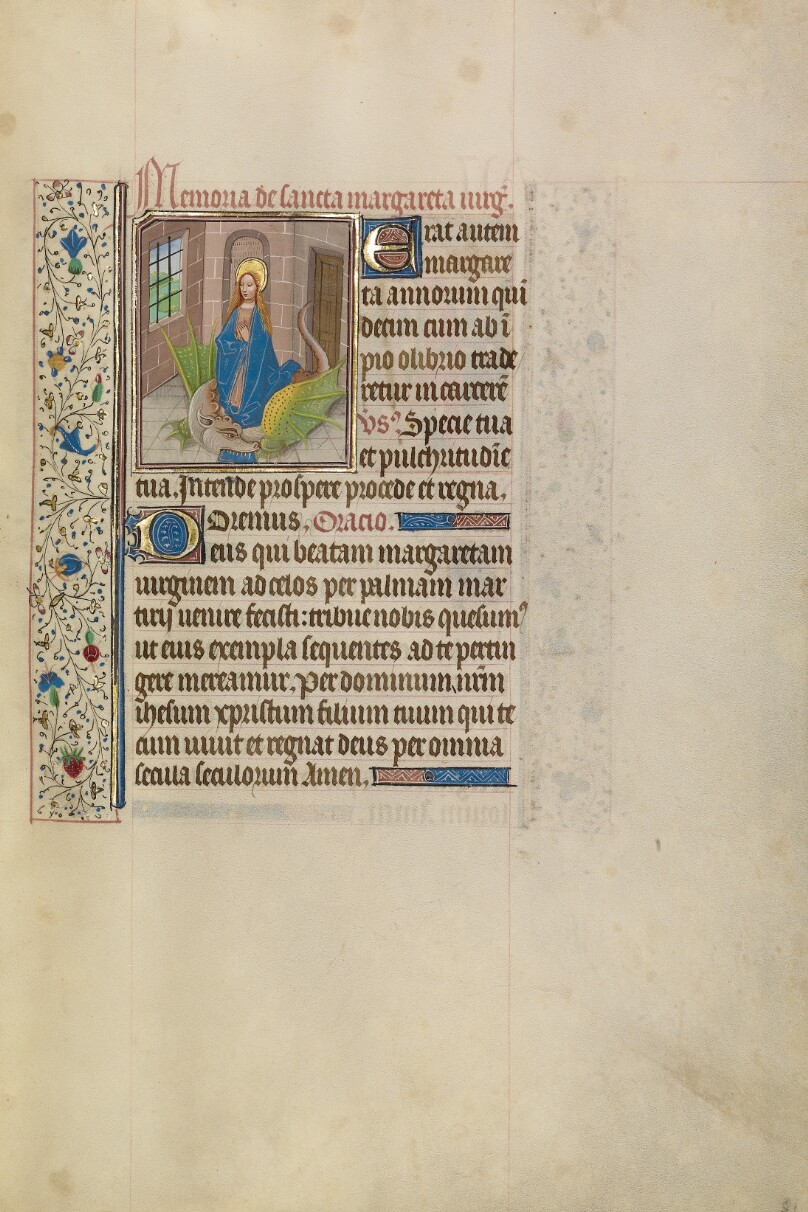 Memoria de sancta margareta uirg.
Erat autem
margare
ta annorum qui
decim cum ab ī
pio olibrio trade
retur in carcerē
vs Specie tua
et pulchritudīe
tua. Intende prospere procede et regna.
Oremus. Oracio.
Deus qui beatam margaretam
uirginem ad celos per palmam mar
tirij uenire fecisti: tribue nobis quesumꝰ
ut eius exempla sequentes ad te pertin
gere mereamur. Per dominum nrm̄
ihesum xpristum filium tuum qui te
cum uiuit et regnat deus per omnia
secula seculorum Amen.